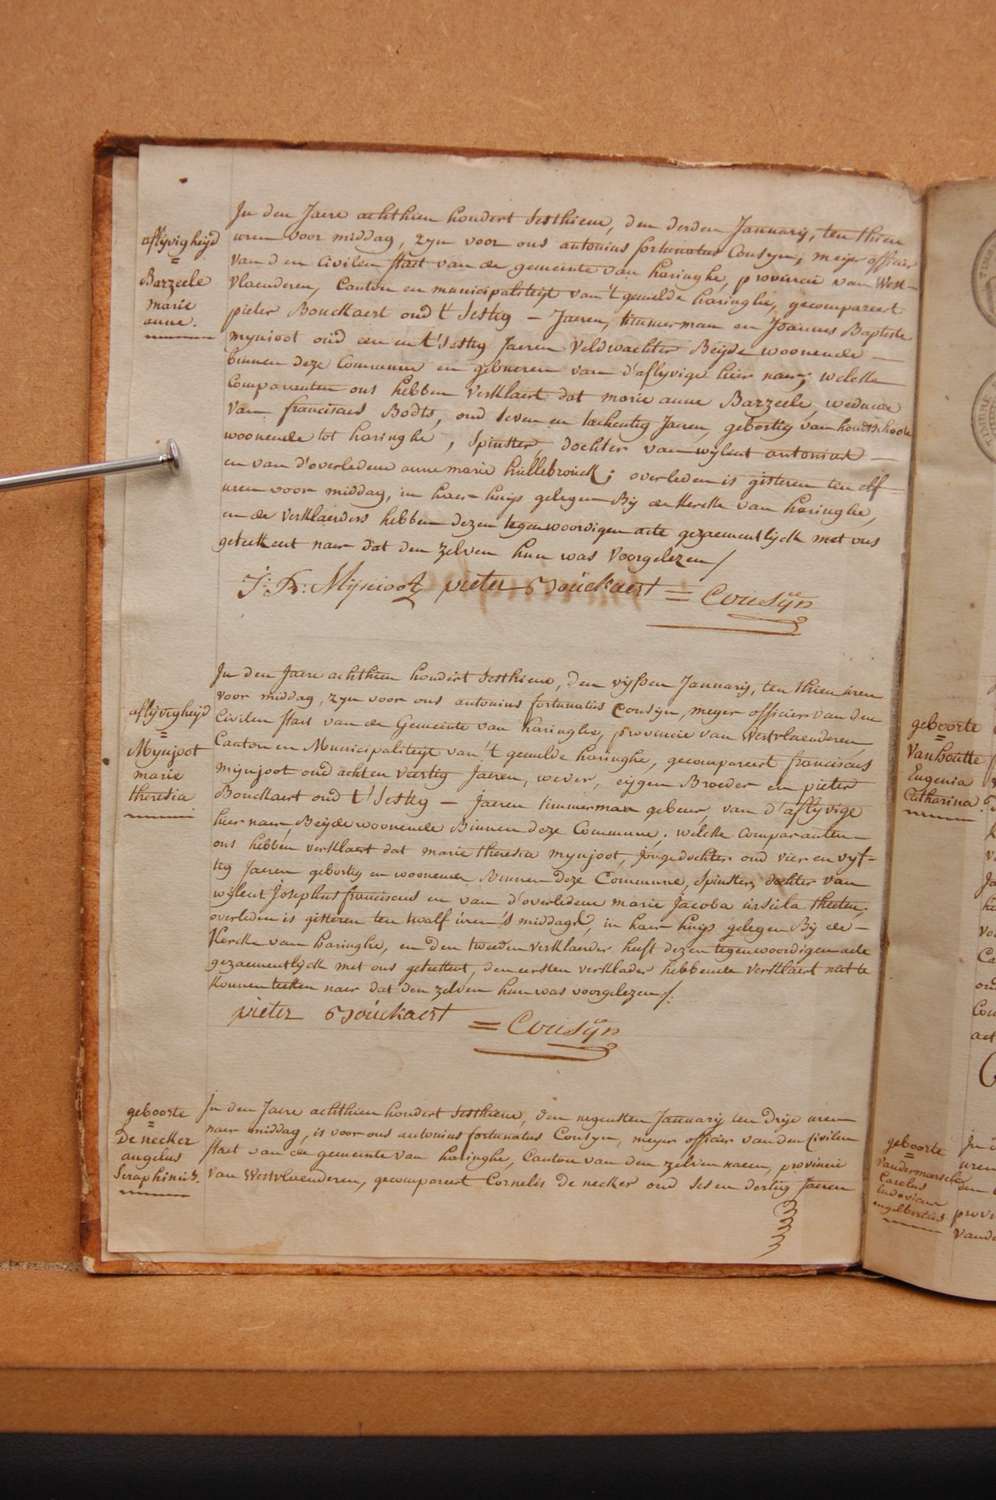 aflyvigheijd
=
Barzeele
marie
anne.
In den Jaere achthien hondert Sesthiene, den derden Januarij, ten thien
uren voor middag, zyn voor ons antonius fortunatus Cousyn, meijer officier
van den Civilen staet van de gemeente van haringhe, provincie van West-
vlaenderen, Canton en municipaliteijt van 't gemelde haringhe, gecompareert
pieter Bouckaert oud t'Sestig – Jaeren, timmerman en Joannes Baptiste
mynjoot oud een en t'Sestig Jaeren Veldwachter Beijde woonende –
binnen deze Commune en gebueren van d'aflyvige hier naer, welcke
Comparanten ons hebben verklaert dat marie anne Barzeele, weduwe
van franciscus Bodts, oud seven en tachentig Jaeren, gebortig van hondtschoote
woonende tot haringhe, Spinster, dochter van wylent antonius –
en van d'overledene anne marie hillebrouck; overleden is gisteren ten elf
uren voor middag, in haer huijs gelegen Bij de Kercke van haringhe,
en de verklaerders hebben dezen tegenwoordigen acte gezaementlijck met ons
geteekent naer dat den zelven hun was voorgelezen /
J: B: Mynioot pieter Bouckaert = Cousijn
aflijvigheijd
=
Mynjoot
marie
theresia
In den Jaere achthien hondert Sesthiene, den vijfden Januarij, ten thien uren
voor middag, zyn voor ons antonius fortunatus Cousyn, meyer officier van den
Civilen staet van de Gemeente van haringhe, provincie van Westvlaenderen,
Canton en Municipaliteijt van 't gemelde haringhe, gecompareert franciscus
mynjoot oud acht en viertig Jaeren, wever, eijgen Broeder en pieter
Bouckaert oud t'Sestig – Jaeren timmerman gebeur, van d'aflyvige
hier naer, Beijde woonende Binnen deze Commune, welcke comparanten –
ons hebben verklaert dat marie theresia mynjoot, jongedochter oud vier en vyf-
tig Jaeren gebortig en woonende Binnen deze Commune, Spinster, dochter van
wylent Josephus franciscus en van d'overledene marie Jacoba ursula theeten;
overleden is gisteren ten twalf uren 's middags, in haer huijs gelegen Bij de –
Kercke van haringhe, en den tweeden verklaerder heeft dezen tegenwoordigen acte
gezaementlyck met ons geteekent, den eersten verklader hebbende verklaert niet te
konnen teeken naer dat den zelven hun was voorgelezen /.
pieter Bouckaert = Cousijn
geboorte
=
De necker
angelus
Seraphinus.
In den Jaere achthien hondert Sesthiene, den negensten Januarij ten drije uren
naer middag, is voor ons antonius fortunatus Cousyn, meyer officier van den Civilen
staet van de gemeente van haringhe, Canton van den zelven naem, provincie
van Westvlaenderen, gecompareert Cornelis De necker oud Ses en dertig Jaeren
geboorte
=
Van houtte
Eugenia
Catharina.
geboorte
=
Vandermarsche
Carolus
Ludovicus
engelbertus